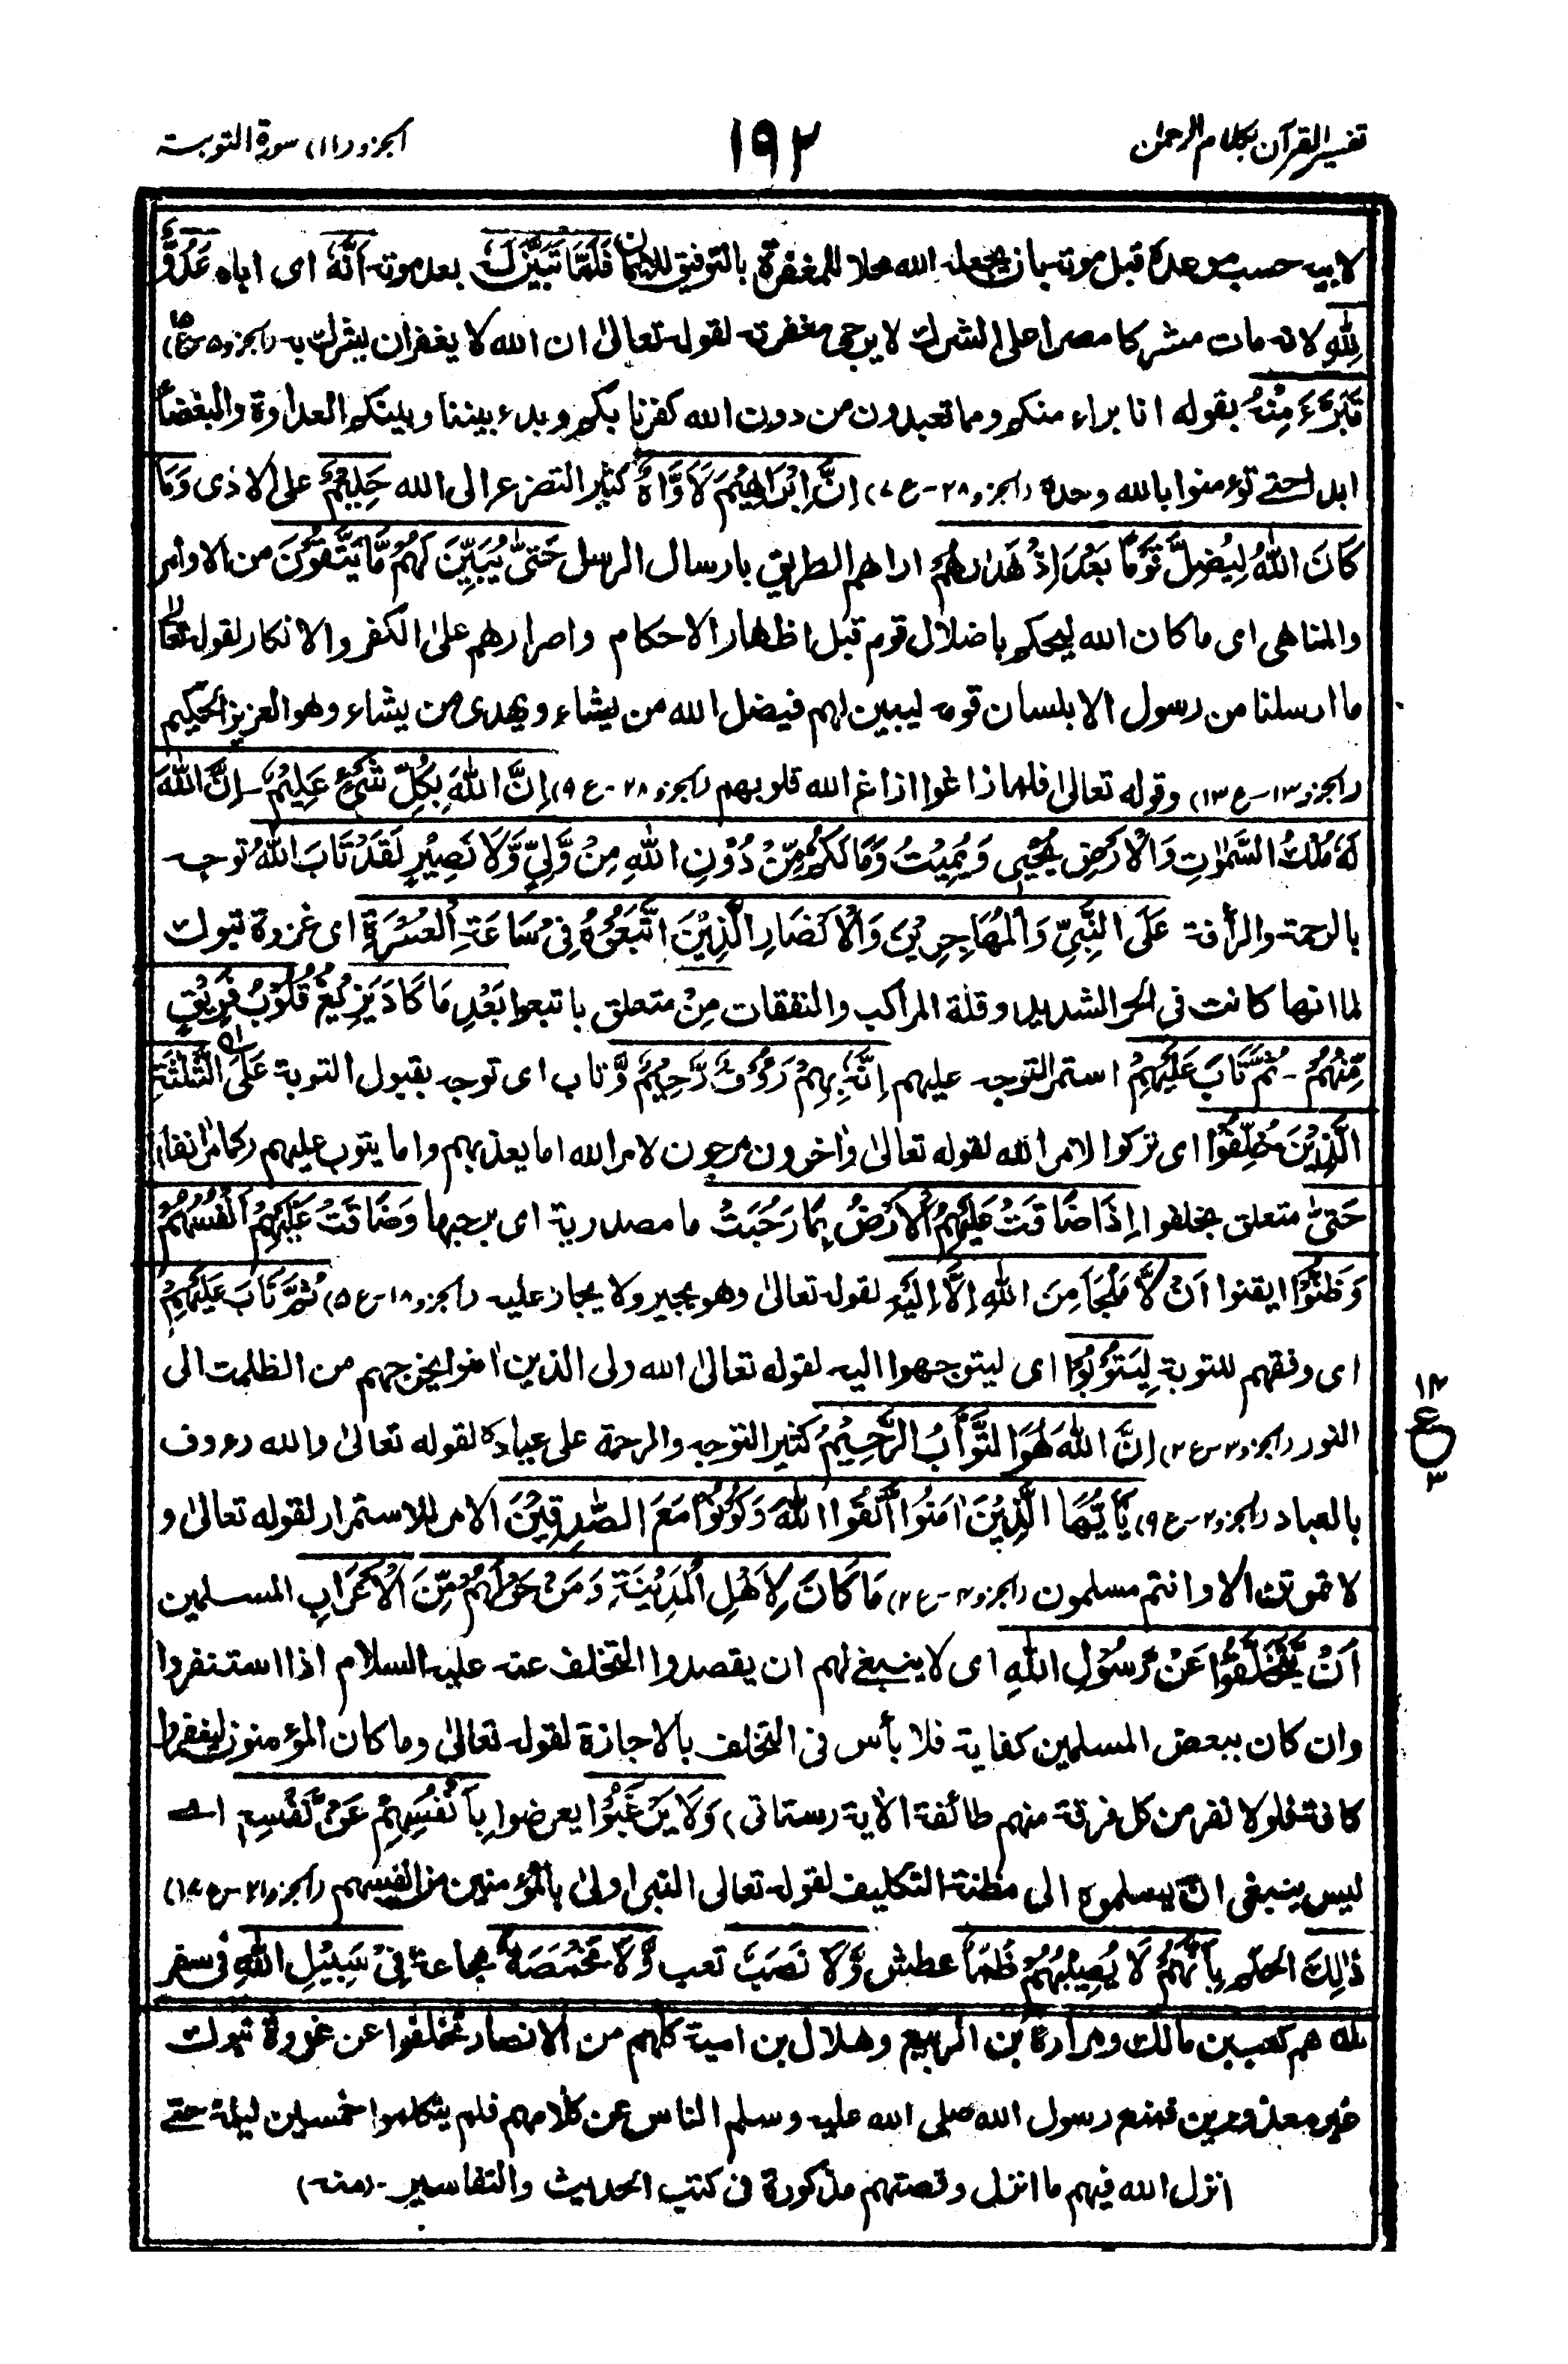 تفسير القرآن بكلام الرحمن
١٩٢
الجزو (١١) سورة التوبة
لابيه حسب موعده قبل موته بان يجعله الله محلا للمغفرة بالتوفيق للايمان فَلَمَّا تَبَيَّنَ لَهٗ بعد موته اَنَّهٗ اى اباه عَدُوٌّ
لِلّٰهِ لانه مات مشركا مصرا على الشرك لا يرجى مغفرته لقوله تعالىٰ ان الله لا يغفر ان يشرك به (الجزو ٥-ع ١٥)
تَبَرَّءَ مِنْهُ بقوله انا براء منكم ومما تعبدون من دون الله كفرنا بكم وبدء بيننا وبينكم العداوة والبغضاء
ابدا حتے تؤمنوا بالله وحده (الجزو ٢٨-ع ٧) اِنَّ اِبْرَاهِيْمَ لَاَوَّاهٌ كثير التضرع الى الله حَلِيْمٌ على الاذى وَمَا
كَانَ اللّٰهُ لِيُضِلَّ قَوْمًا بَعْدَ اِذْ هَدٰىهُمْ اراهم الطريق بارسال الرسل حَتّٰى يُبَيِّنَ لَهُمْ مَّا يَتَّقُوْنَ من الاوامر
والمناهى اى ما كان الله ليحكم باضلال قوم قبل اظهار الاحكام واصرارهم على الكفر والانكار لقوله تعالىٰ
ما ارسلنا من رسول الا بلسان قومه ليبين لهم فيضل الله من يشاء ويهدى من يشاء وهو العزيز الحكيم
(الجزو ١٣-ع ١٣) وقوله تعالىٰ فلما زاغوا ازاغ الله قلوبهم (الجزو ٢٨-ع ٩) اِنَّ اللّٰهَ بِكُلِّ شَىْءٍ عَلِيْمٌ-اِنَّ اللّٰهَ
لَهٗ مُلْكُ السَّمٰوٰتِ وَالْاَرْضِ يُحْيٖى وَيُمِيْتُ وَمَا لَكُمْ مِّنْ دُوْنِ اللّٰهِ مِنْ وَّلِىٍّ وَّلَا نَصِيْرٍ لَقَدْ تَابَ اللّٰهُ توجه
بالرحمة والرأفة عَلَى النَّبِىِّ وَالْمُهَاجِرِيْنَ وَالْاَنْصَارِ الَّذِيْنَ اتَّبَعُوْهُ فِىْ سَاعَةِ الْعُسْرَةِ اى غزوة تبوك
لما انها كانت فى الحر الشديد وقلة المراكب والنفقات مِنْ متعلق باتبعوا بَعْدِ مَا كَادَ يَزِيْغُ قُلُوْبُ فَرِيْقٍ
مِّنْهُمْ-ثُمَّ تَابَ عَلَيْهِمْ استمر التوجه عليهم اِنَّهٗ بِهِمْ رَءُوْفٌ رَّحِيْمٌ وَّتاب اى توجه بقبول التوبة عَلَى الثَّلٰثَةِ
الَّذِيْنَ خُلِّفُوْا اى تركوا لامر الله لقوله تعالىٰ واٰخرون مرجون لامر الله اما يعذبهم واما يتوب عليهم (كما مر اٰنفا)
حَتّٰى متعلق بخلفوا اِذَا ضَاقَتْ عَلَيْهِمُ الْاَرْضُ بِمَا رَحُبَتْ ما مصدرية اى برحبها وَضَاقَتْ عَلَيْهِمْ اَنْفُسُهُمْ
وَظَنُّوْا ايقنوا اَنْ لَّا مَلْجَاَ مِنَ اللّٰهِ اِلَّا اِلَيْهِ لقوله تعالىٰ وهو يجير ولا يجار عليه (الجزو ١٨-ع ٥) ثُمَّ تَابَ عَلَيْهِمْ
اى وفقهم للتوبة لِيَتُوْبُوْا اى ليتوجهوا اليه لقوله تعالىٰ الله ولى الذين اٰمنوا يخرجهم من الظلمت الى
النور (الجزو ٣-ع ٢) اِنَّ اللّٰهَ هُوَ التَّوَّابُ الرَّحِيْمُ كثير التوجه والرحمة على عباده لقوله تعالىٰ والله رءوف
بالعباد (الجزو ٢-ع ٩) يٰٓاَيُّهَا الَّذِيْنَ اٰمَنُوا اتَّقُوا اللّٰهَ وَكُوْنُوْا مَعَ الصّٰدِقِيْنَ الامر للاستمرار لقوله تعالىٰ و
لا تموتن الا وانتم مسلمون (الجزو ٤-ع ٢) مَا كَانَ لِاَهْلِ الْمَدِيْنَةِ وَمَنْ حَوْلَهُمْ مِّنَ الْاَعْرَابِ المسلمين
اَنْ يَّتَخَلَّفُوْا عَنْ رَّسُوْلِ اللّٰهِ اى لا ينبغے لهم ان يقصدوا التخلف عنه عليه السلام اذا استنفروا
وان كان ببعض المسلمين كفاية فلا بأس فى التخلف بالاجازة لقوله تعالىٰ وما كان المؤمنون لينفروا
كافة فلولا نفر من كل فرقة منهم طائفة الاٰية (ستاتى) وَلَا يَرْغَبُوْا يعرضوا بِاَنْفُسِهِمْ عَنْ نَّفْسِهٖ اے
ليس ينبغى ان يسلموه الى مظنة التكليف لقوله تعالى النبى اولىٰ بالمؤمنين من انفسهم (الجزو ٢١-ع ١٧)
ذٰلِكَ الحكم بِاَنَّهُمْ لَا يُصِيْبُهُمْ ظَمَاٌ عطش وَّلَا نَصَبٌ تعب وَّلَا مَخْمَصَةٌ مجاعة فِىْ سَبِيْلِ اللّٰهِ فى سفر
١٤
ع
٣
لـه هم كعب بن مالك ومرارة بن الربيع وهلال بن امية كلهم من الانصار تخلفوا عن غزوة تبوك
غير معذورين فمنع رسول الله صلى الله عليه وسلم الناس عن كلامهم فلم يتكلموا خمسين ليلة حتے
انزل الله فيهم ما انزل وقصتهم مذكورة فى كتب الحديث والتفاسير-(منه)